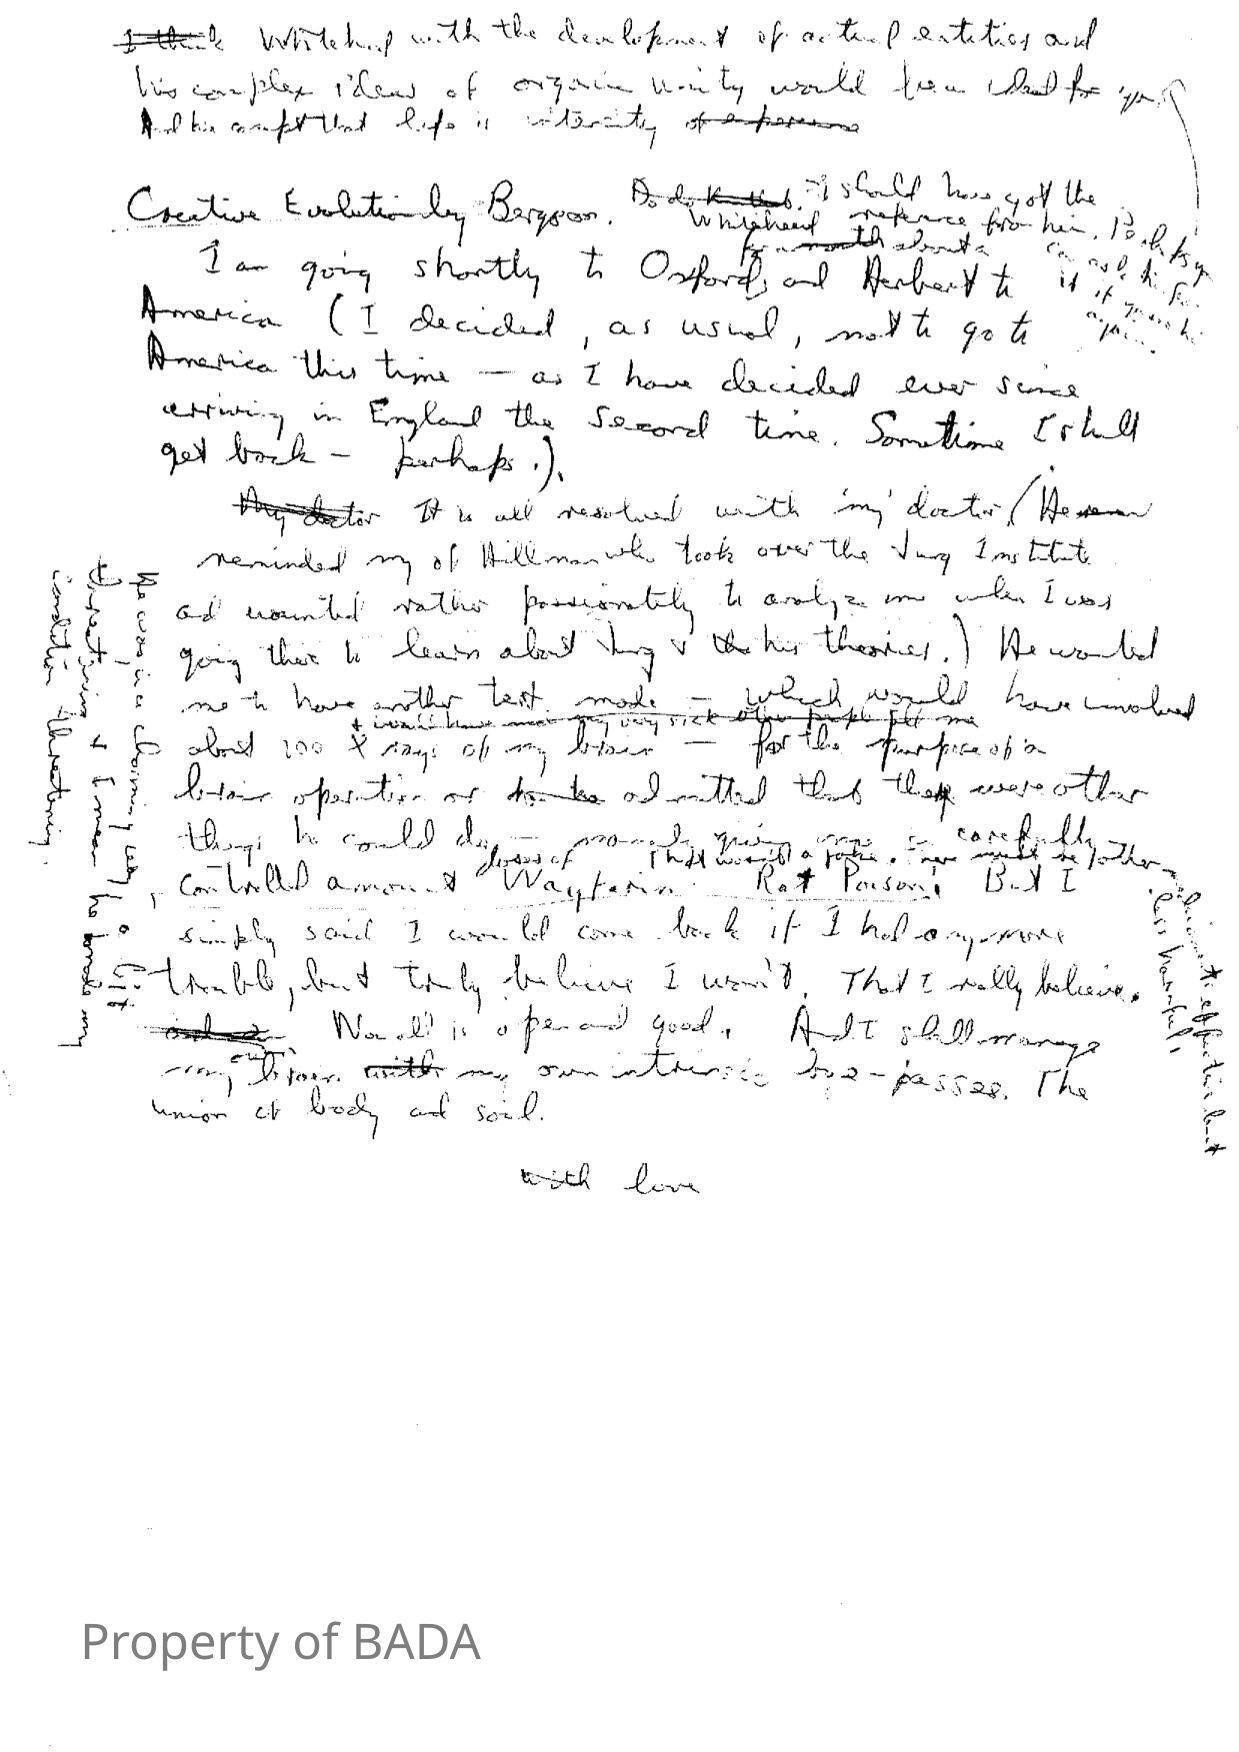 I think Whitehead with the development of actual entities and
his complex ideas of organic unity would be ideal for you.
And his concept that life is intensity of
Creative Evolution by Bergson. I should have got the
Whitehead reference from him.
for about a
I am going shortly to Oxford, and Herbert to
America (I decided, as usual, not to go to
America this time – as I have decided ever since
arriving in England the second time. Sometime I shall
get back – perhaps.).
My doctor It is all resolved with 'my' doctor (He
reminded my of Hillman who took over the Jung Institute
ad wanted rather passionately to analyze me when I was
going there to learn about Jung & his theories.) He wanted
me to have another test made – which would have involved
about 100 X rays of my brain – for the purpose of a
brain operation or admitted that they were other
things he could do – namely giving me a carefully
That wasn't a joke. must be other
controlled amount doses of Wayfarin. Rat Poison! But I
simply said I would come back if I had anymore
trouble, but truly believe I won't. That I really believe.
Now all is open and good. And I shall manage
my own brain with my own intrinsic bye-passes. The
union of body ad soul.
with love
He was, in a charming way, a bit
threatening & I mean he made my
condition threatening.
effective but
less harmful.
Property of BADA